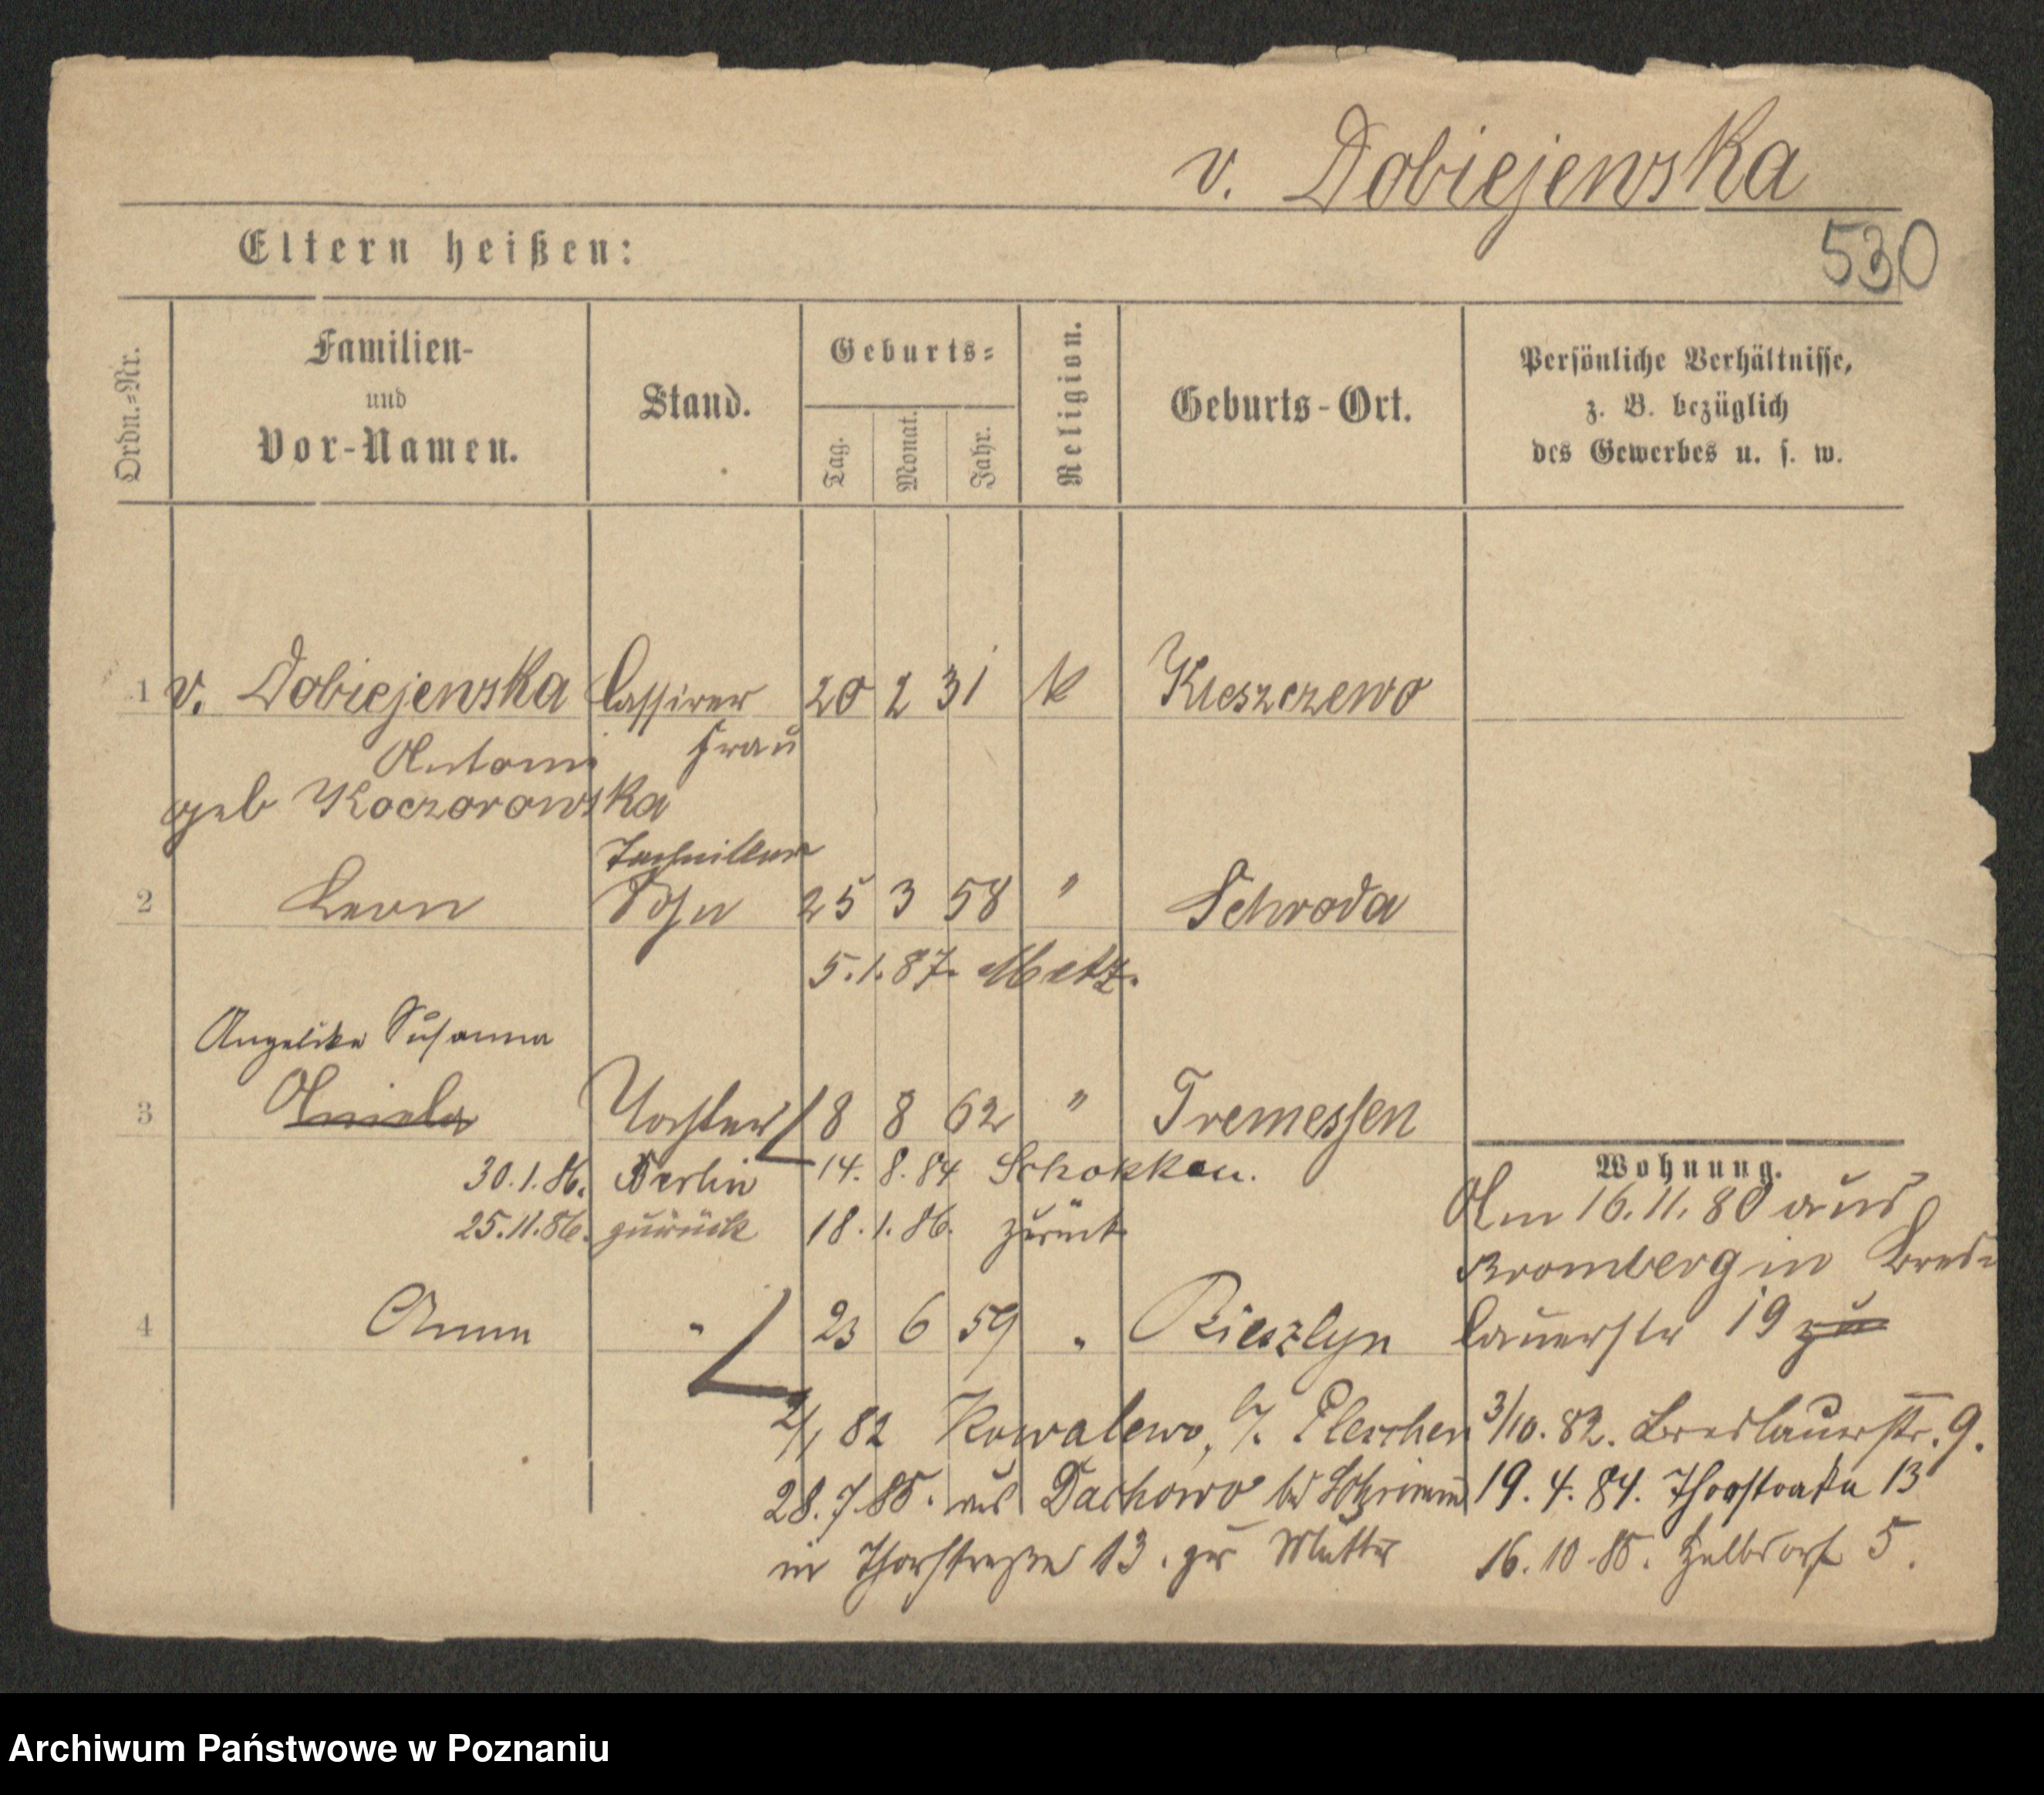 v. Dobiejewska
530
Eltern heißen:
Ordn.-Nr.
Familien-
und
Vor-Namen.
Stand.
Geburts-
Tag.
Monat.
Jahr.
Religion.
Geburts-Ort.
Persönliche Verhältnisse,
z. B. bezüglich
des Gewerbes u. s. w.
1 v. Dobiejewska Cassirer 20 2 31 k Kleszczewo
Antoni Frau
geb Koczorowska
Techniker
2 Leon Sohn 25 3 58 " Schroda
5.1.87. Metz.
Angelika Susanna
3 Aniela Tochter 8 8 62 " Tremessen
30.1.86. Berlin 14. 8. 84 Schokken.
25.11.86. zurück 18. 1. 86. zurück
Wohnung.
Am 16.11.80 aus
Bromberg in Bres-
lauerstr 19 zu
4 Anna " 23 6 59 "
2/1 82 Kowalewo, b/. Pleschen
28.7.85. aus Dachowo bei Schrimm
in Thorstraße 13. zur Mutter
3/10. 82. Breslauerstr. 9.
19. 4. 84. Thorstraße 13
16. 10. 85. Halbdorf 5.
Archiwum Państwowe w Poznaniu